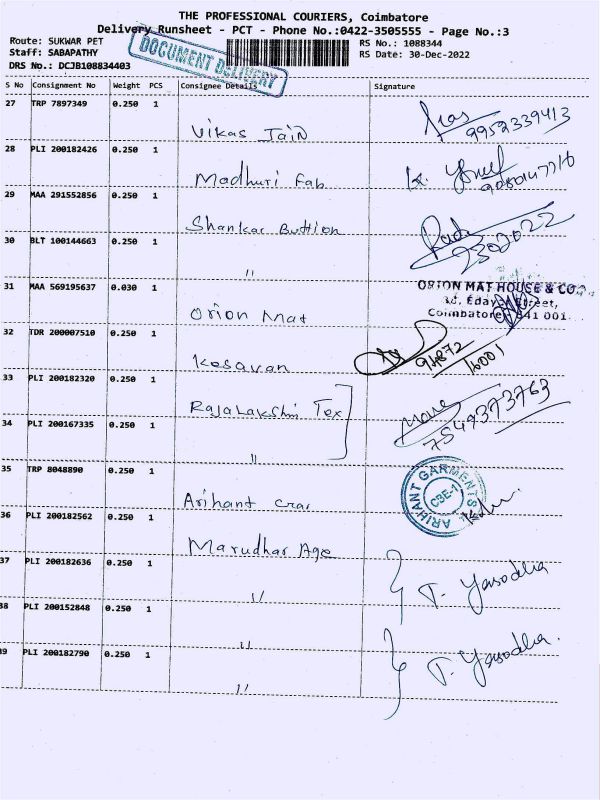 THE PROFESSIONAL COURIERS, Coimbatore
Delivery Runsheet - PCT - Phone No.:0422-3505555 - Page No.:3
Route: SUKWAR PET
RS No.: 1088344
Staff: SABAPATHY
RS Date: 30-Dec-2022
DRS No.: DCJB108834403
DOCUMENT DELIVERY
S No Consignment No Weight PCS Consignee Details Signature
27 TRP 7897349 0.250 1
Vikas Jain
9952339413
28 PLI 200182426 0.250 1
Madhuri Fab
29 MAA 291552856 0.250 1
Shankar Buttion
30 BLT 100144663 0.250 1
"
31 MAA 569195637 0.030 1
Orion Mat
ORION MAT HOUSE & CO.
Street,
Coimbatore 641 001
32 TDR 200007510 0.250 1
Kesavan
94872
16001
33 PLI 200182320 0.250 1
Rajalakshmi Tex
7549373763
34 PLI 200167335 0.250 1
"
35 TRP 8048890 0.250 1
Arihant
ARIHANT GARMENTS
CBE-1
36 PLI 200182562 0.250 1
Marudhar Age
37 PLI 200182636 0.250 1
"
T. Yasodha
38 PLI 200152848 0.250 1
"
39 PLI 200182790 0.250 1
"
T. Yasodha